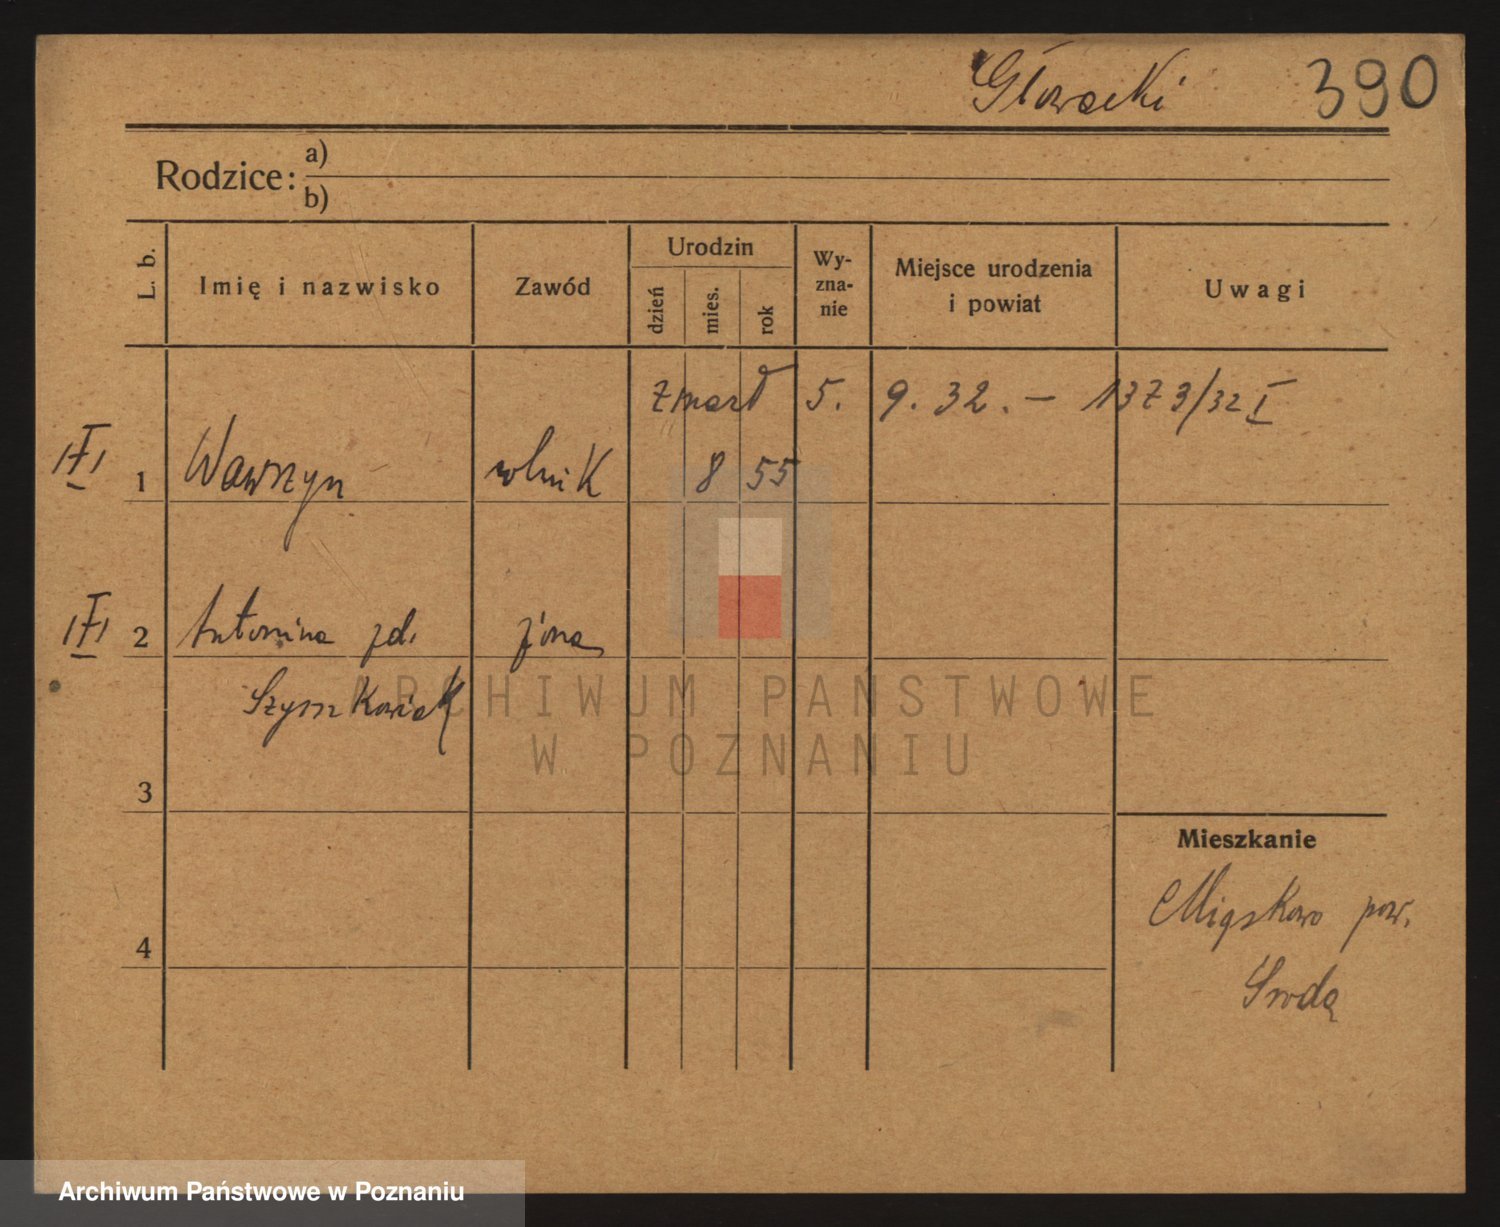 Głowacki 390
Rodzice: a)
b)
L. b. Imię i nazwisko Zawód Urodzin dzień mies. rok Wy-zna-nie Miejsce urodzenia i powiat Uwagi
zmarł 5. 9. 32. – 1323/32 I
1 Wawrzyn rolnik 8 55
2 Antonina zd. żona
Szymkowiak
ARCHIWUM PAŃSTWOWE
W POZNANIU
3
Mieszkanie
Miąskowo pow.
4
Środa
Archiwum Państwowe w Poznaniu